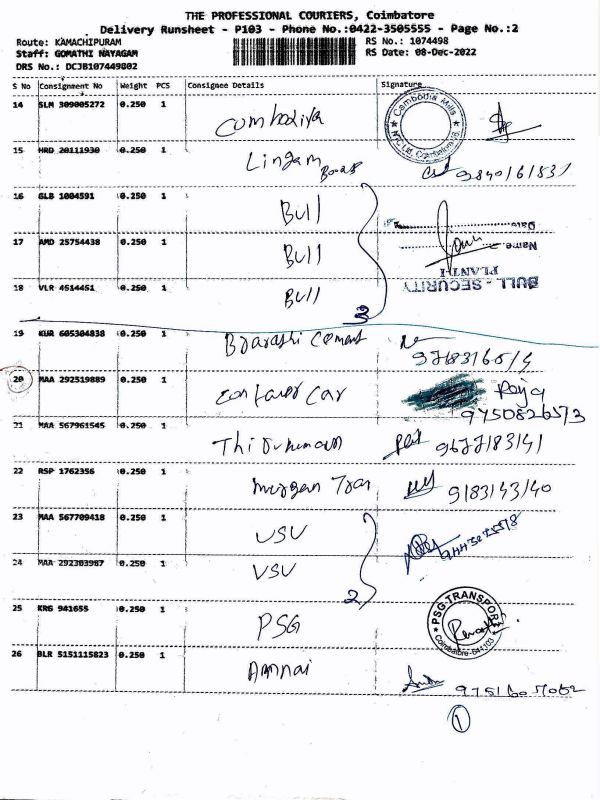 THE PROFESSIONAL COURIERS, Coimbatore
Delivery Runsheet - P103 - Phone No.:0422-3505555 - Page No.:2
Route: KAMACHIPURAM RS No.: 1074498
Staff: GOMATHI NAYAGAM RS Date: 08-Dec-2022
DRS No.: DCJB107449802
S No Consignment No Weight PCS Consignee Details Signature
14 SLM 309005272 0.250 1 Cambodiya
Cambodia Mills
15 HRD 20111930 0.250 1 Lingam
16 GLB 1004591 0.250 1 Bull
Date
17 AMD 25754438 0.250 1 Bull
Name
BULL - SECURITY
PLANT-I
18 VLR 4514451 0.250 1 Bull
3
19 KUR 605304838 0.250 1 Bharathi Cement
20 MAA 292519889 0.250 1 Car
9750826573
21 MAA 567961545 0.250 1
22 RSP 1762356 0.250 1 Murgan
9183143140
23 MAA 567709418 0.250 1 USV
24 MAA 292303987 0.250 1 VSV
2
25 KRG 941655 0.250 1 PSG
PSG-TRANSPORT
Coimbatore-641 103
26 BLR 5151115823 0.250 1 Annai
1